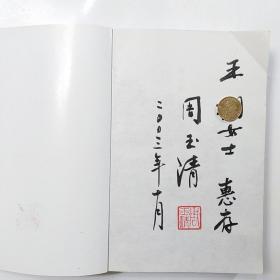 王女士 惠存
周玉清
二〇〇三年十月